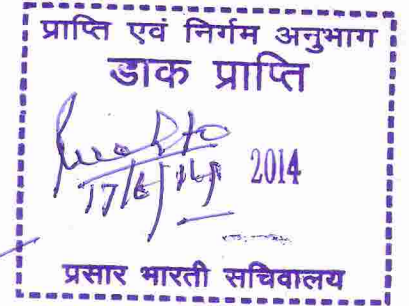 प्राप्ति एवं निर्गम अनुभाग
डाक प्राप्ति
17/6/14 2014
प्रसार भारती सचिवालय